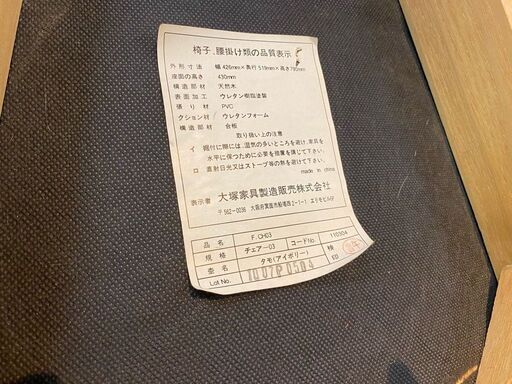 椅子、腰掛け類の品質表示
外形寸法 幅426mm×奥行519mm×高さ780mm
座面の高さ 430mm
構造部材 天然木
表面加工 ウレタン樹脂塗装
張り材 PVC
クション材 ウレタンフォーム
構造部材 合板
取り扱い上の注意
イ 据付に際には、湿気の多いところを避け、家具を
水平に保つために必要な措置を講じて下さい。
ロ 直射日光又はストーブ等の熱を避けて下さい。
made in china
表示者 大塚家具製造販売株式会社
〒562-0036 大阪府箕面市船場西2-1-1 エリモビル4F
品名 F.CH03
規格 チェアー03 コードNo. 110304
壷名 タモ(アイボリー) 検印
Lot No.